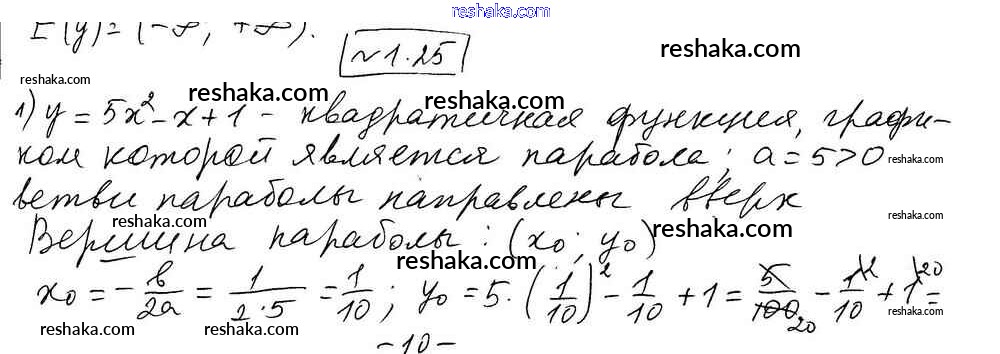 reshaka.com
E(y)=(-∞, +∞).
№1.25
reshaka.com
reshaka.com
reshaka.com reshaka.com
1) y = 5x² - x + 1 - квадратичная функция, графи-
ком которой является парабола; a = 5 > 0 reshaka.com
ветви параболы направлены вверх
reshaka.com reshaka.com reshaka.com
Вершина параболы: (x₀; y₀)
reshaka.com
x₀ = -b/2a = 1/2·5 = 1/10; y₀ = 5·(1/10)² - 1/10 + 1 = 5/100 20 - 1\2/10 + 1\20 =
reshaka.com reshaka.com reshaka.com reshaka.com
-10-